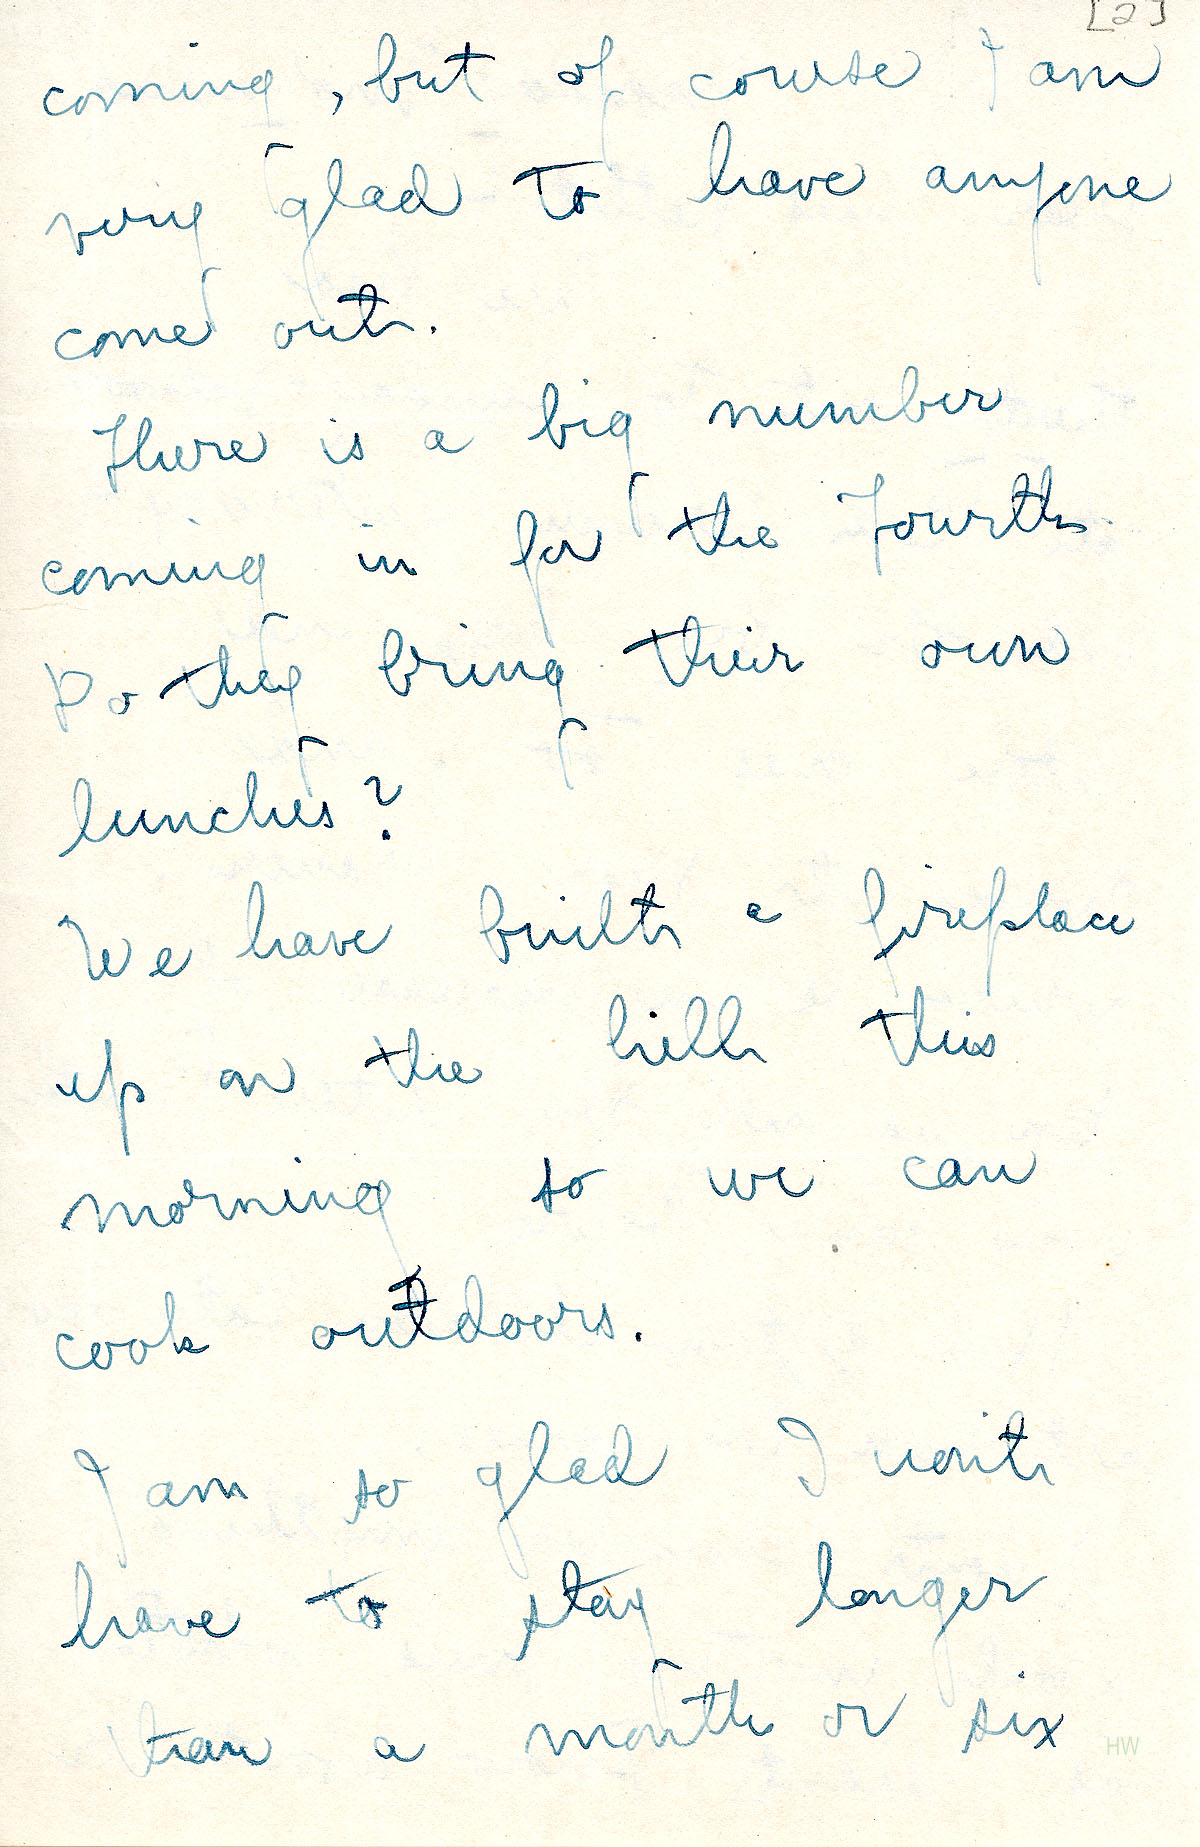 [2]
coming, but of course I am
very glad to have anyone
come out.
There is a big number
coming in for the Fourth
Do they bring their own
lunches?
We have built a fireplace
up on the hill this
morning so we can
cook outdoors.
I am so glad I wont
have to stay longer
than a month or six
HW